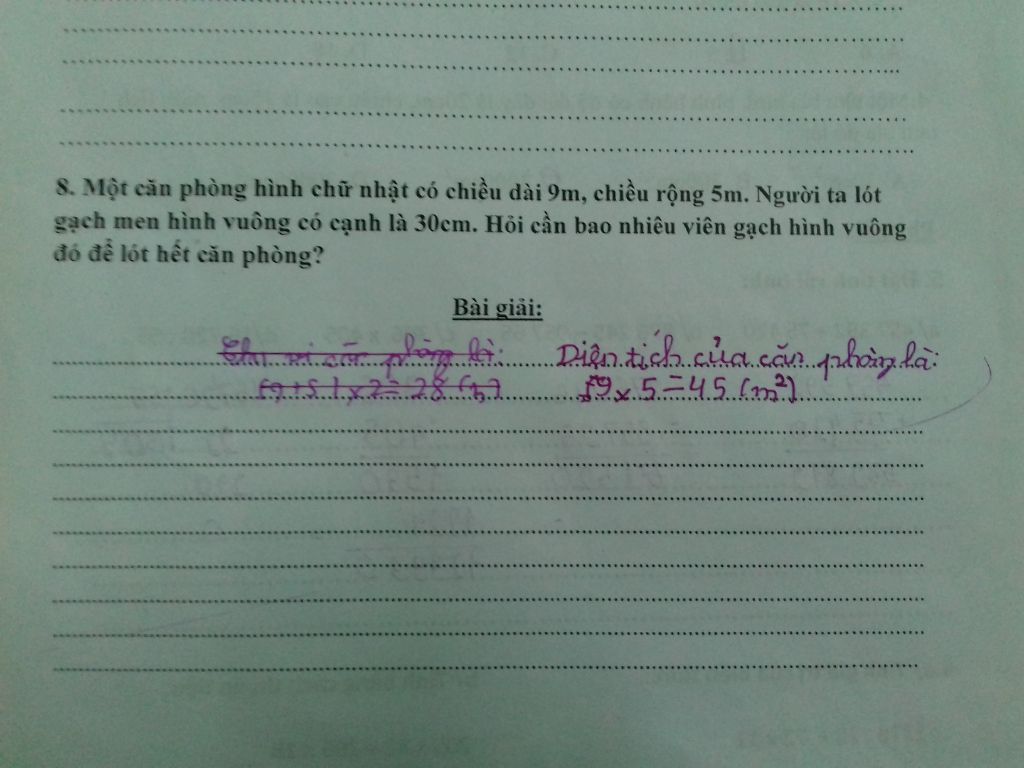 8. Một căn phòng hình chữ nhật có chiều dài 9m, chiều rộng 5m. Người ta lót
gạch men hình vuông có cạnh là 30cm. Hỏi cần bao nhiêu viên gạch hình vuông
đó để lót hết căn phòng?
Bài giải:
Chu vi căn phòng là: Diện tích của căn phòng là:
(9+5)x2=28 (m) 9x5=45 (m²)